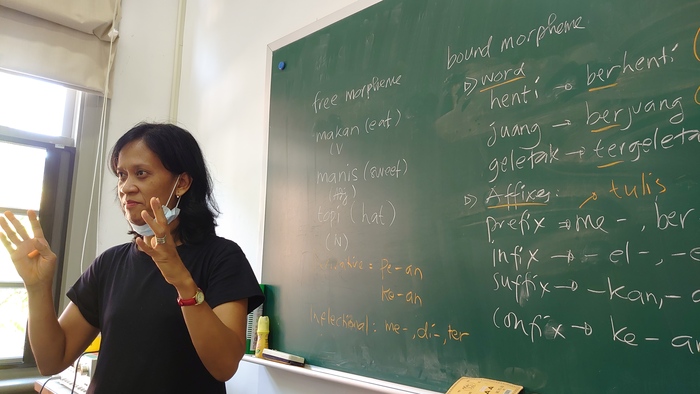 free morpheme
makan (eat)
(V
manis (sweet)
(Adj)
topi (hat)
(N)
= pe-an
ke-an
Inflectional : me-, di-, ter
bound morpheme
word
henti → berhenti (
juang → berjuang
geletak → tergeleta
Affixes:
→ tulis
prefix → me-, ber
infix → -el-, -e
suffix → -kan, -
Confix → ke-an